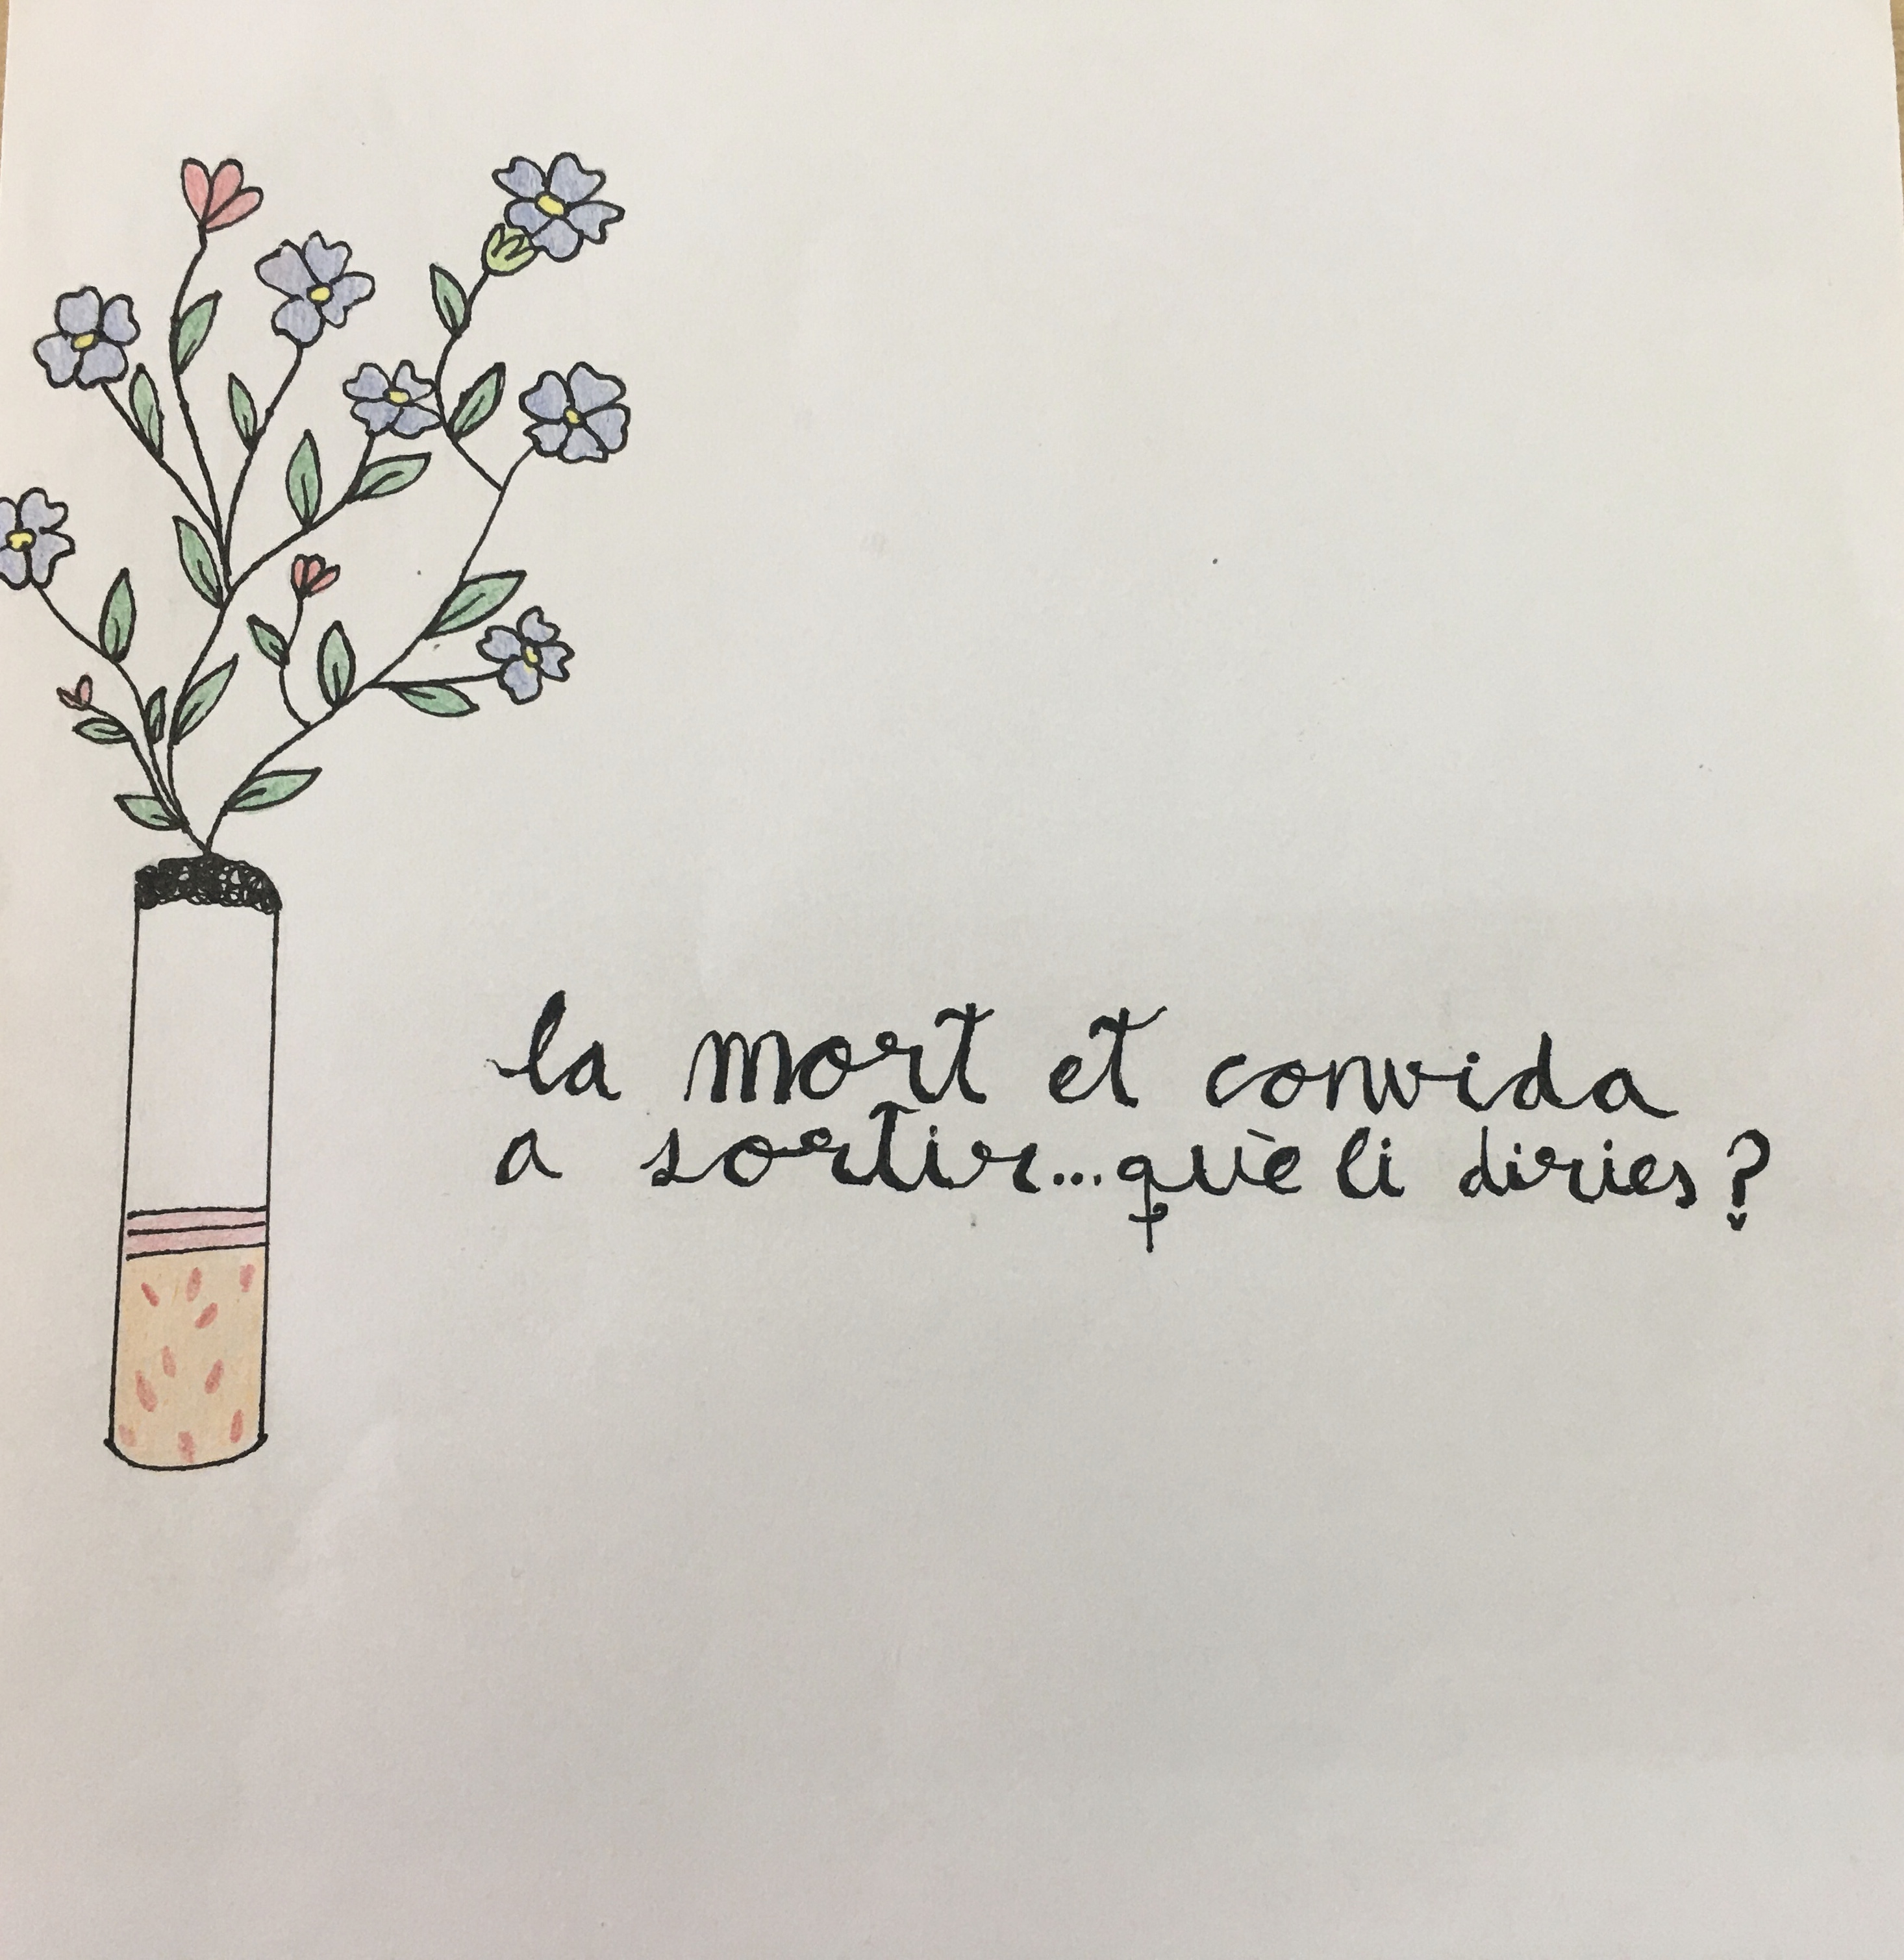 la mort et convida
a sortir...què li diries?